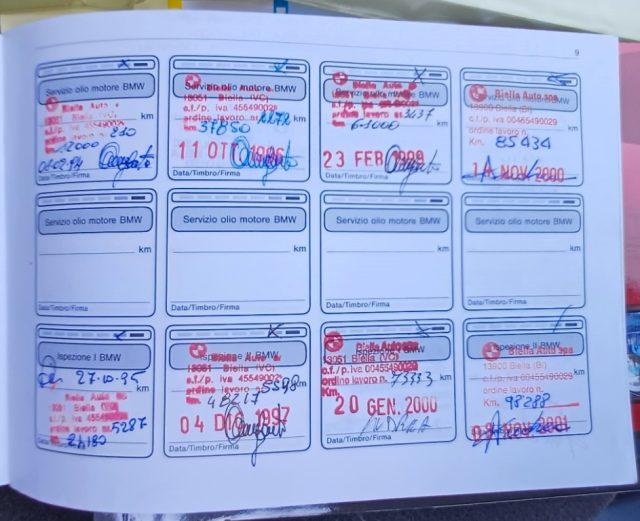 9
Servizio olio motore BMW
Biella Auto
13051 Biella (VC)
c.f/p. iva 455490029
ordine lavoro nr. 210
Km. 12000
01.02.94
Data/Timbro/Firma
Servizio olio motore BMW
Biella Auto
13051 Biella (VC)
c.f/p. iva 45549002
ordine lavoro nr.
Km. 37850
11 OTT 1996
Data/Timbro/Firma
Servizio olio motore BMW
Biella Auto
ordine lavoro nr. 3437
Km.
23 FEB 1999
Data/Timbro/Firma
Biella Auto spa
13900 Biella (BI)
c.f/p. iva 00455490029
ordine lavoro n.
Km. 85434
NOV 2000
Data/Timbro/Firma
Servizio olio motore BMW
km
Data/Timbro/Firma
Servizio olio motore BMW
km
Data/Timbro/Firma
Servizio olio motore BMW
km
Data/Timbro/Firma
Servizio olio motore BMW
km
Data/Timbro/Firma
Ispezione I BMW
27-10-95
km
Biella Auto
13051 Biella (VC)
ordine lavoro nr. 5287
Km. 24180
Data/Timbro/Firma
Ispezione II BMW
Biella Auto
13051 Biella (VC)
c.f/p. iva 45549002
ordine lavoro 5598
Km. 48217
04 DIC 1997
Data/Timbro/Firma
Ispezione I BMW
Biella Auto spa
13051 Biella (VC)
c.f/p. iva 00455490029
ordine lavoro n. 73333
Km.
20 GEN. 2000
Data/Timbro/Firma
Ispezione II BMW
Biella Auto spa
13900 Biella (BI)
c.f/p. iva 00455490029
ordine lavoro n.
Km. 98288
NOV 2001
Data/Timbro/Firma